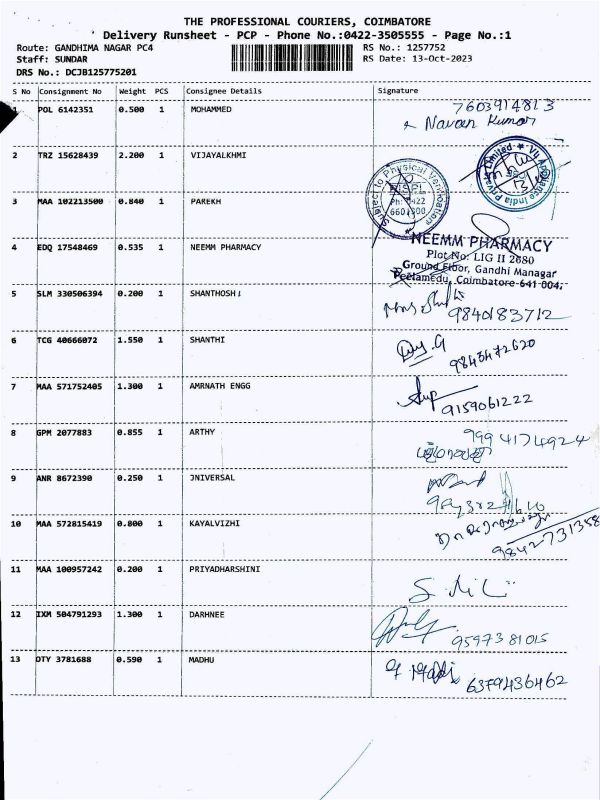 THE PROFESSIONAL COURIERS, COIMBATORE
Delivery Runsheet - PCP - Phone No.:0422-3505555 - Page No.:1
Route: GANDHIMA NAGAR PC4 RS No.: 1257752
Staff: SUNDAR RS Date: 13-Oct-2023
DRS No.: DCJB125775201
S No Consignment No Weight PCS Consignee Details Signature
1 POL 6142351 0.500 1 MOHAMMED 7603914813
Naveen Kumar
2 TRZ 15628439 2.200 1 VIJAYALKHMI
3 MAA 102213500 0.840 1 PAREKH
Subject to Physical Verification
4 EDQ 17548469 0.535 1 NEEMM PHARMACY NEEMM PHARMACY
Plot No. LIG II 2680
Ground Floor, Gandhi Managar
Peelamedu, Coimbatore-641 004.
5 SLM 330506394 0.200 1 SHANTHOSH
9840183712
6 TCG 40666072 1.550 1 SHANTHI
9843472620
7 MAA 571752405 1.300 1 AMRNATH ENGG
9159061222
8 GPM 2077883 0.855 1 ARTHY 9994174924
9 ANR 8672390 0.250 1 JNIVERSAL
10 MAA 572815419 0.800 1 KAYALVIZHI
9842731358
11 MAA 100957242 0.200 1 PRIYADHARSHINI
12 IXM 504791293 1.300 1 DARHNEE
9597381015
13 OTY 3781688 0.590 1 MADHU
6379436462